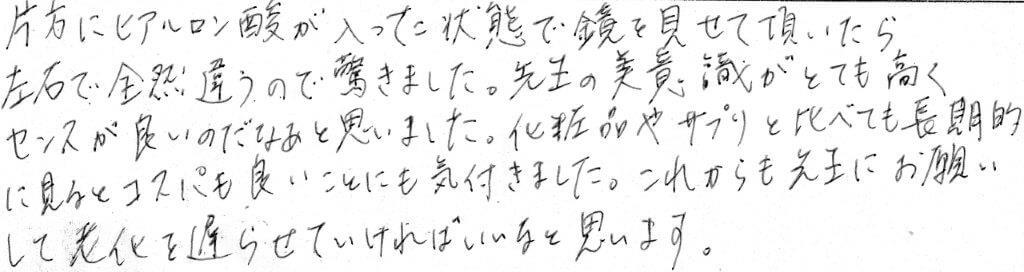 片方にヒアルロン酸が入った状態で鏡を見せて頂いたら
左右で全然違うので驚きました。先生の美意識がとても高く
センスが良いのだなあと思いました。化粧品やサプリと比べても長期的
に見るとコスパも良いことにも気付きました。これからも先生にお願い
して老化を遅らせていければいいなと思います。